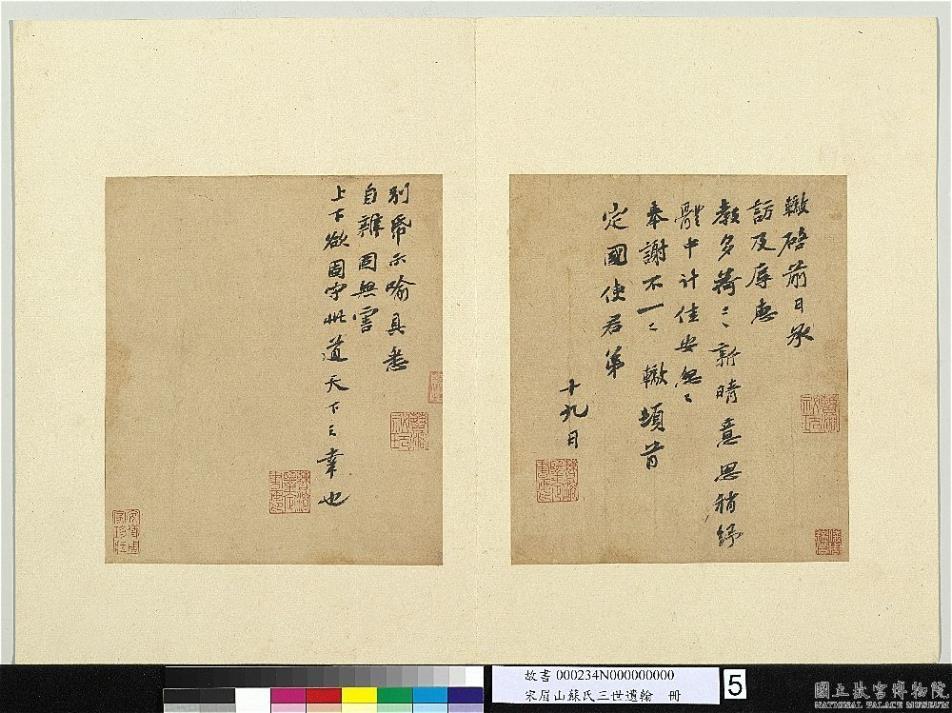 轍啓前日承
訪及辱惠
教多荷〻新晴意思稍紓
體中計佳安忽〻
奉謝不一〻 轍頓首
定國使君弟
十九日
別帋示喻具悉
自雜固無害
上下欲固守此道天下之幸也
故書 000234N000000000
宋眉山蘇氏三世遺翰 冊
5
國立故宮博物院
NATIONAL PALACE MUSEUM